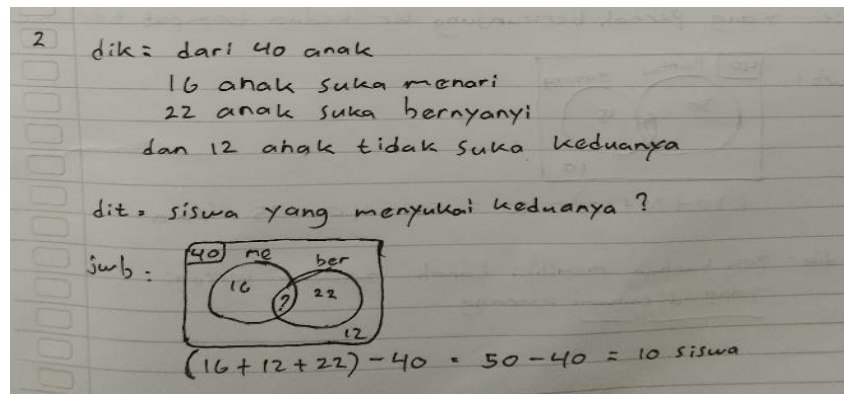 2
dik : dari 40 anak
16 anak suka menari
22 anak suka bernyanyi
dan 12 anak tidak suka keduanya
dit : siswa yang menyukai keduanya ?
jwb :
40 me ber
16 ? 22
12
(16 + 12 + 22) - 40 = 50 - 40 = 10 siswa